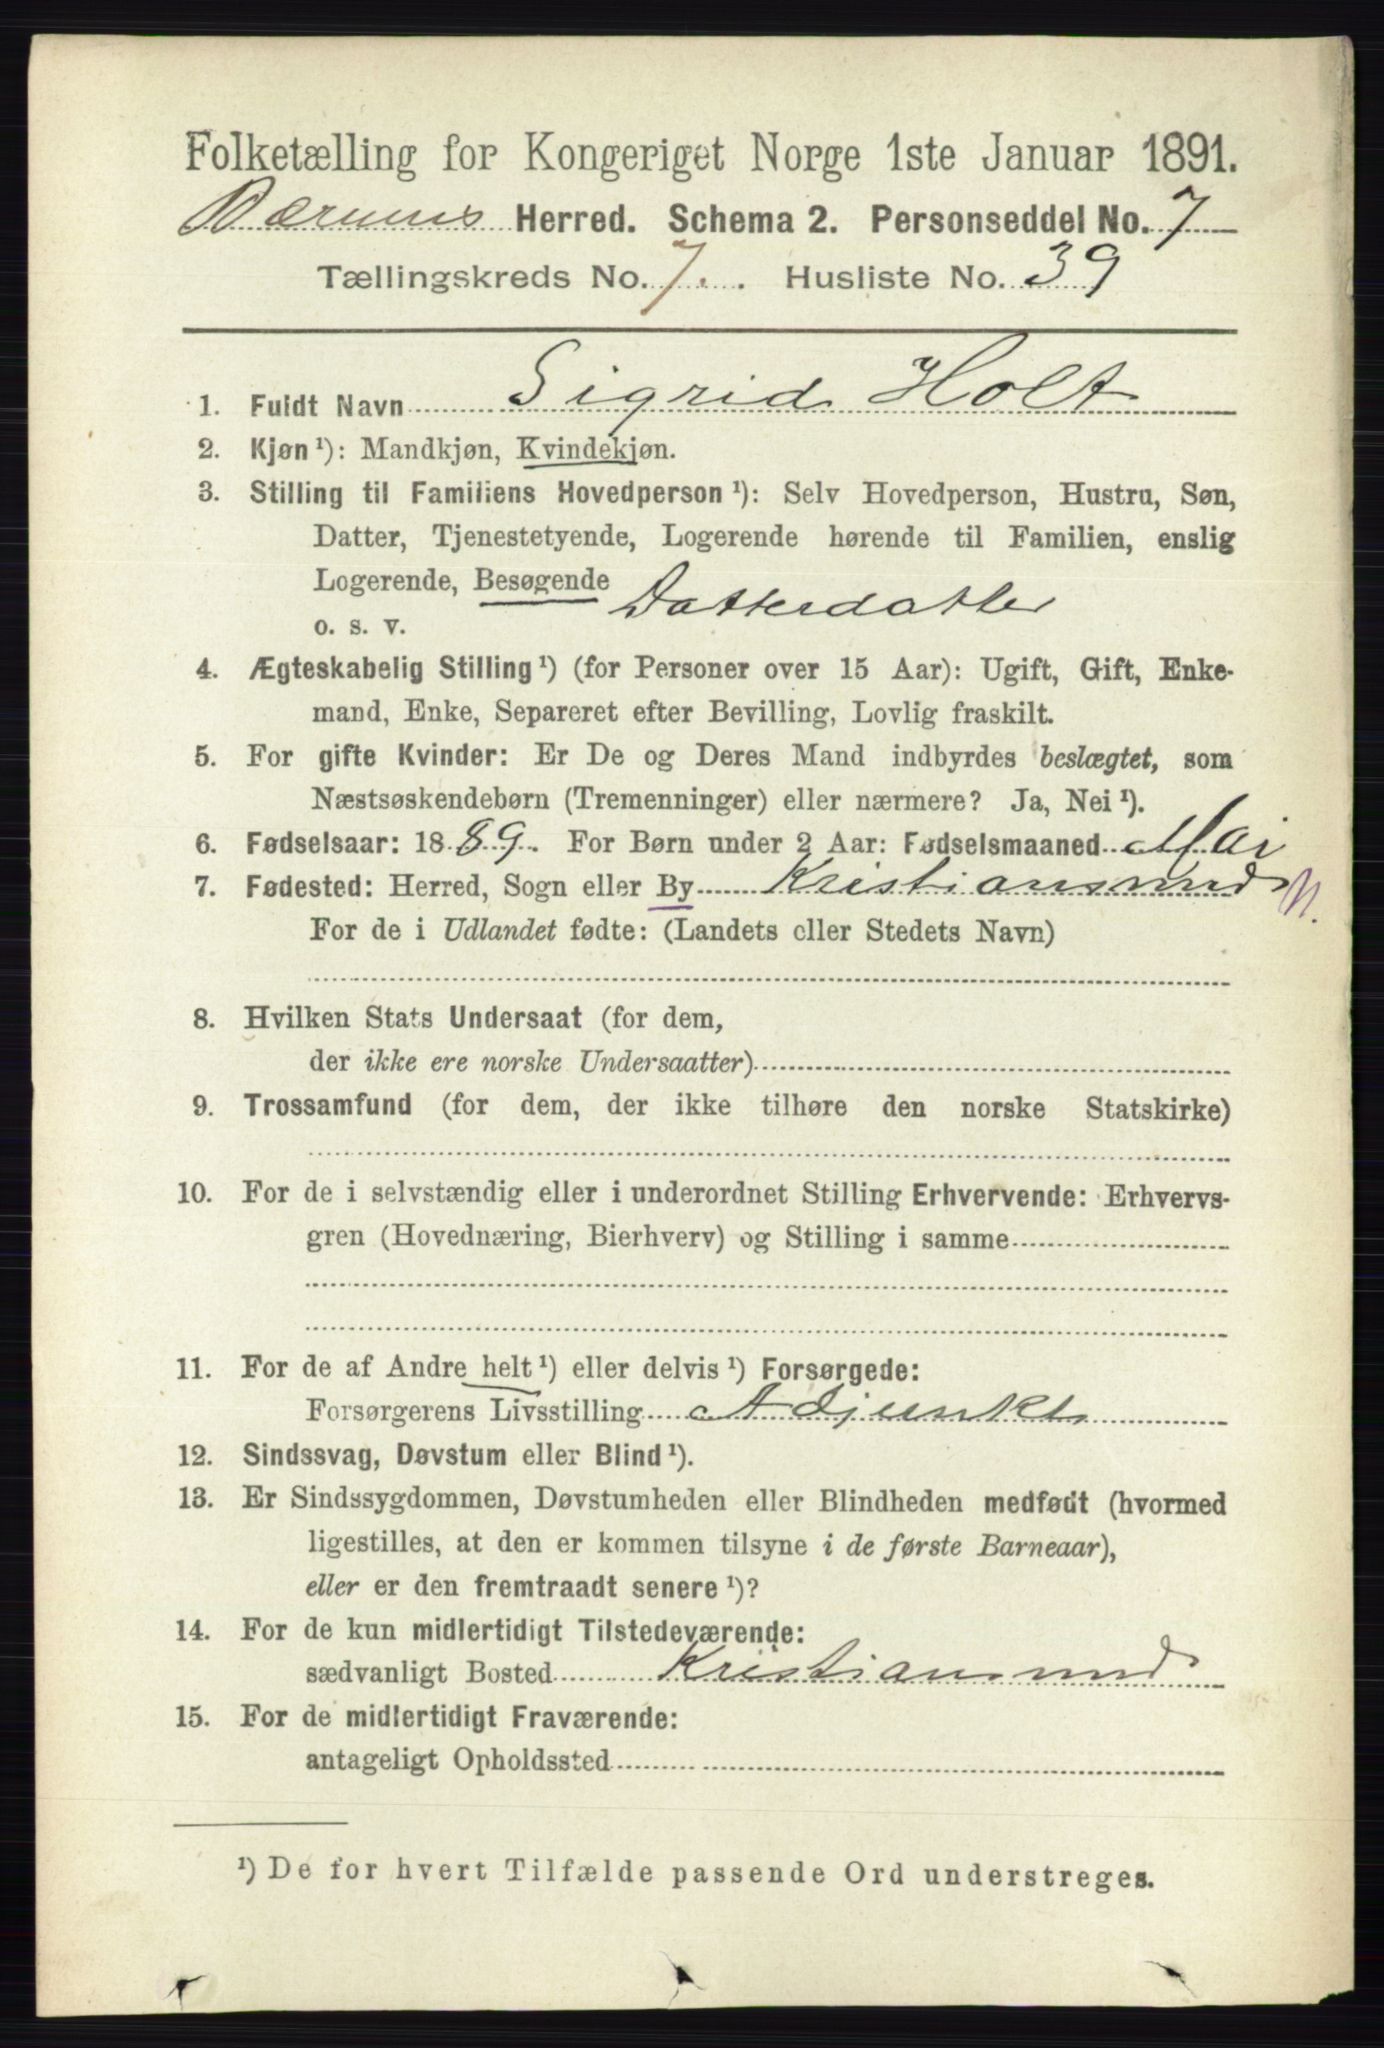 Folketælling for Kongeriget Norge 1ste Januar 1891.
Bærums Herred. Schema 2. Personseddel No. 7
Tællingskreds No. 7. Husliste No. 39
1. Fuldt Navn Sigrid Holt
2. Kjøn ¹): Mandkjøn, Kvindekjøn.
3. Stilling til Familiens Hovedperson ¹): Selv Hovedperson, Hustru, Søn,
Datter, Tjenestetyende, Logerende hørende til Familien, enslig
Logerende, Besøgende Datterdatter
o. s. v.
4. Ægteskabelig Stilling ¹) (for Personer over 15 Aar): Ugift, Gift, Enke-
mand, Enke, Separeret efter Bevilling, Lovlig fraskilt.
5. For gifte Kvinder: Er De og Deres Mand indbyrdes beslægtet, som
Næstsøskendebørn (Tremenninger) eller nærmere? Ja, Nei ¹).
6. Fødselsaar: 1889. For Børn under 2 Aar: Fødselsmaaned Mai
7. Fødested: Herred, Sogn eller By Kristiansund N.
For de i Udlandet fødte: (Landets eller Stedets Navn)
8. Hvilken Stats Undersaat (for dem,
der ikke ere norske Undersaatter)
9. Trossamfund (for dem, der ikke tilhøre den norske Statskirke)
10. For de i selvstændig eller i underordnet Stilling Erhvervende: Erhvervs-
gren (Hovednæring, Bierhverv) og Stilling i samme
11. For de af Andre helt ¹) eller delvis ¹) Forsørgede:
Forsørgerens Livsstilling Adjunkt
12. Sindssvag, Døvstum eller Blind ¹).
13. Er Sindssygdommen, Døvstumheden eller Blindheden medfødt (hvormed
ligestilles, at den er kommen tilsyne i de første Barneaar),
eller er den fremtraadt senere ¹)?
14. For de kun midlertidigt Tilstedeværende:
sædvanligt Bosted Kristiansund
15. For de midlertidigt Fraværende:
antageligt Opholdssted
¹) De for hvert Tilfælde passende Ord understreges.